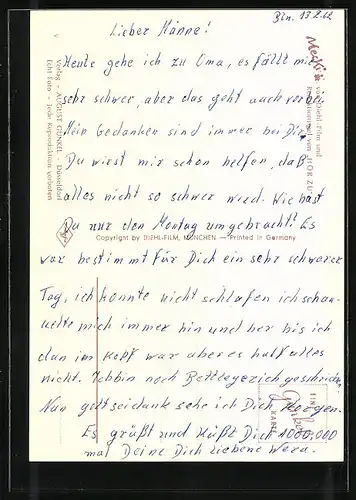 Bln. 13.2.62
Lieber Männe!
Heute gehe ich zu Oma, es fällt mir
sehr schwer, aber das geht auch vorbei
Mein Gedanken sind immer bei Dir.
Du wirst mir schon helfen, daß
alles nicht so schwer wird. Wie hast
Du nur den Montag umgebracht? Es
war bestimmt für Dich ein sehr schwerer
Tag, ich konnte nicht schlafen ich schau-
kelte mich immer hin und her bis ich
dan im Kopf war aber es half alles
nicht. Ich bin noch
Nun gottseidank sehe ich Dich Morgen.
Es grüßt und küßt Dich 1000,000
mal Deine Dich liebene Wera.
Copyright by DIEHL-FILM, MÜNCHEN — Printed in Germany
Verlag - AUGUST GUNKEL - Düsseldorf
Echt Foto - Jede Reproduktion verboten
Mecki
von Diehl Film und
HÖR ZU
EINE
KARTE